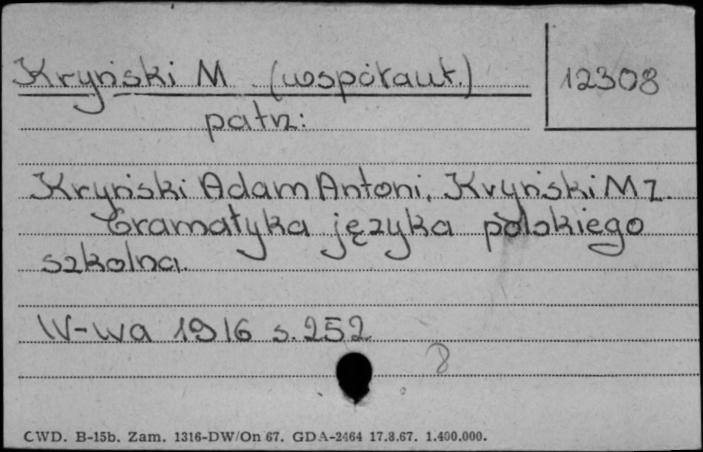 Kryński M (współaut.)
12308
patrz:
Kryński Adam Antoni, Kryński M z.
Gramatyka języka polskiego
szkolna.
W-wa 1916 s. 252
8
CWD. B-15b. Zam. 1316-DW/On 67. GDA-2464 17.8.67. 1.400.000.